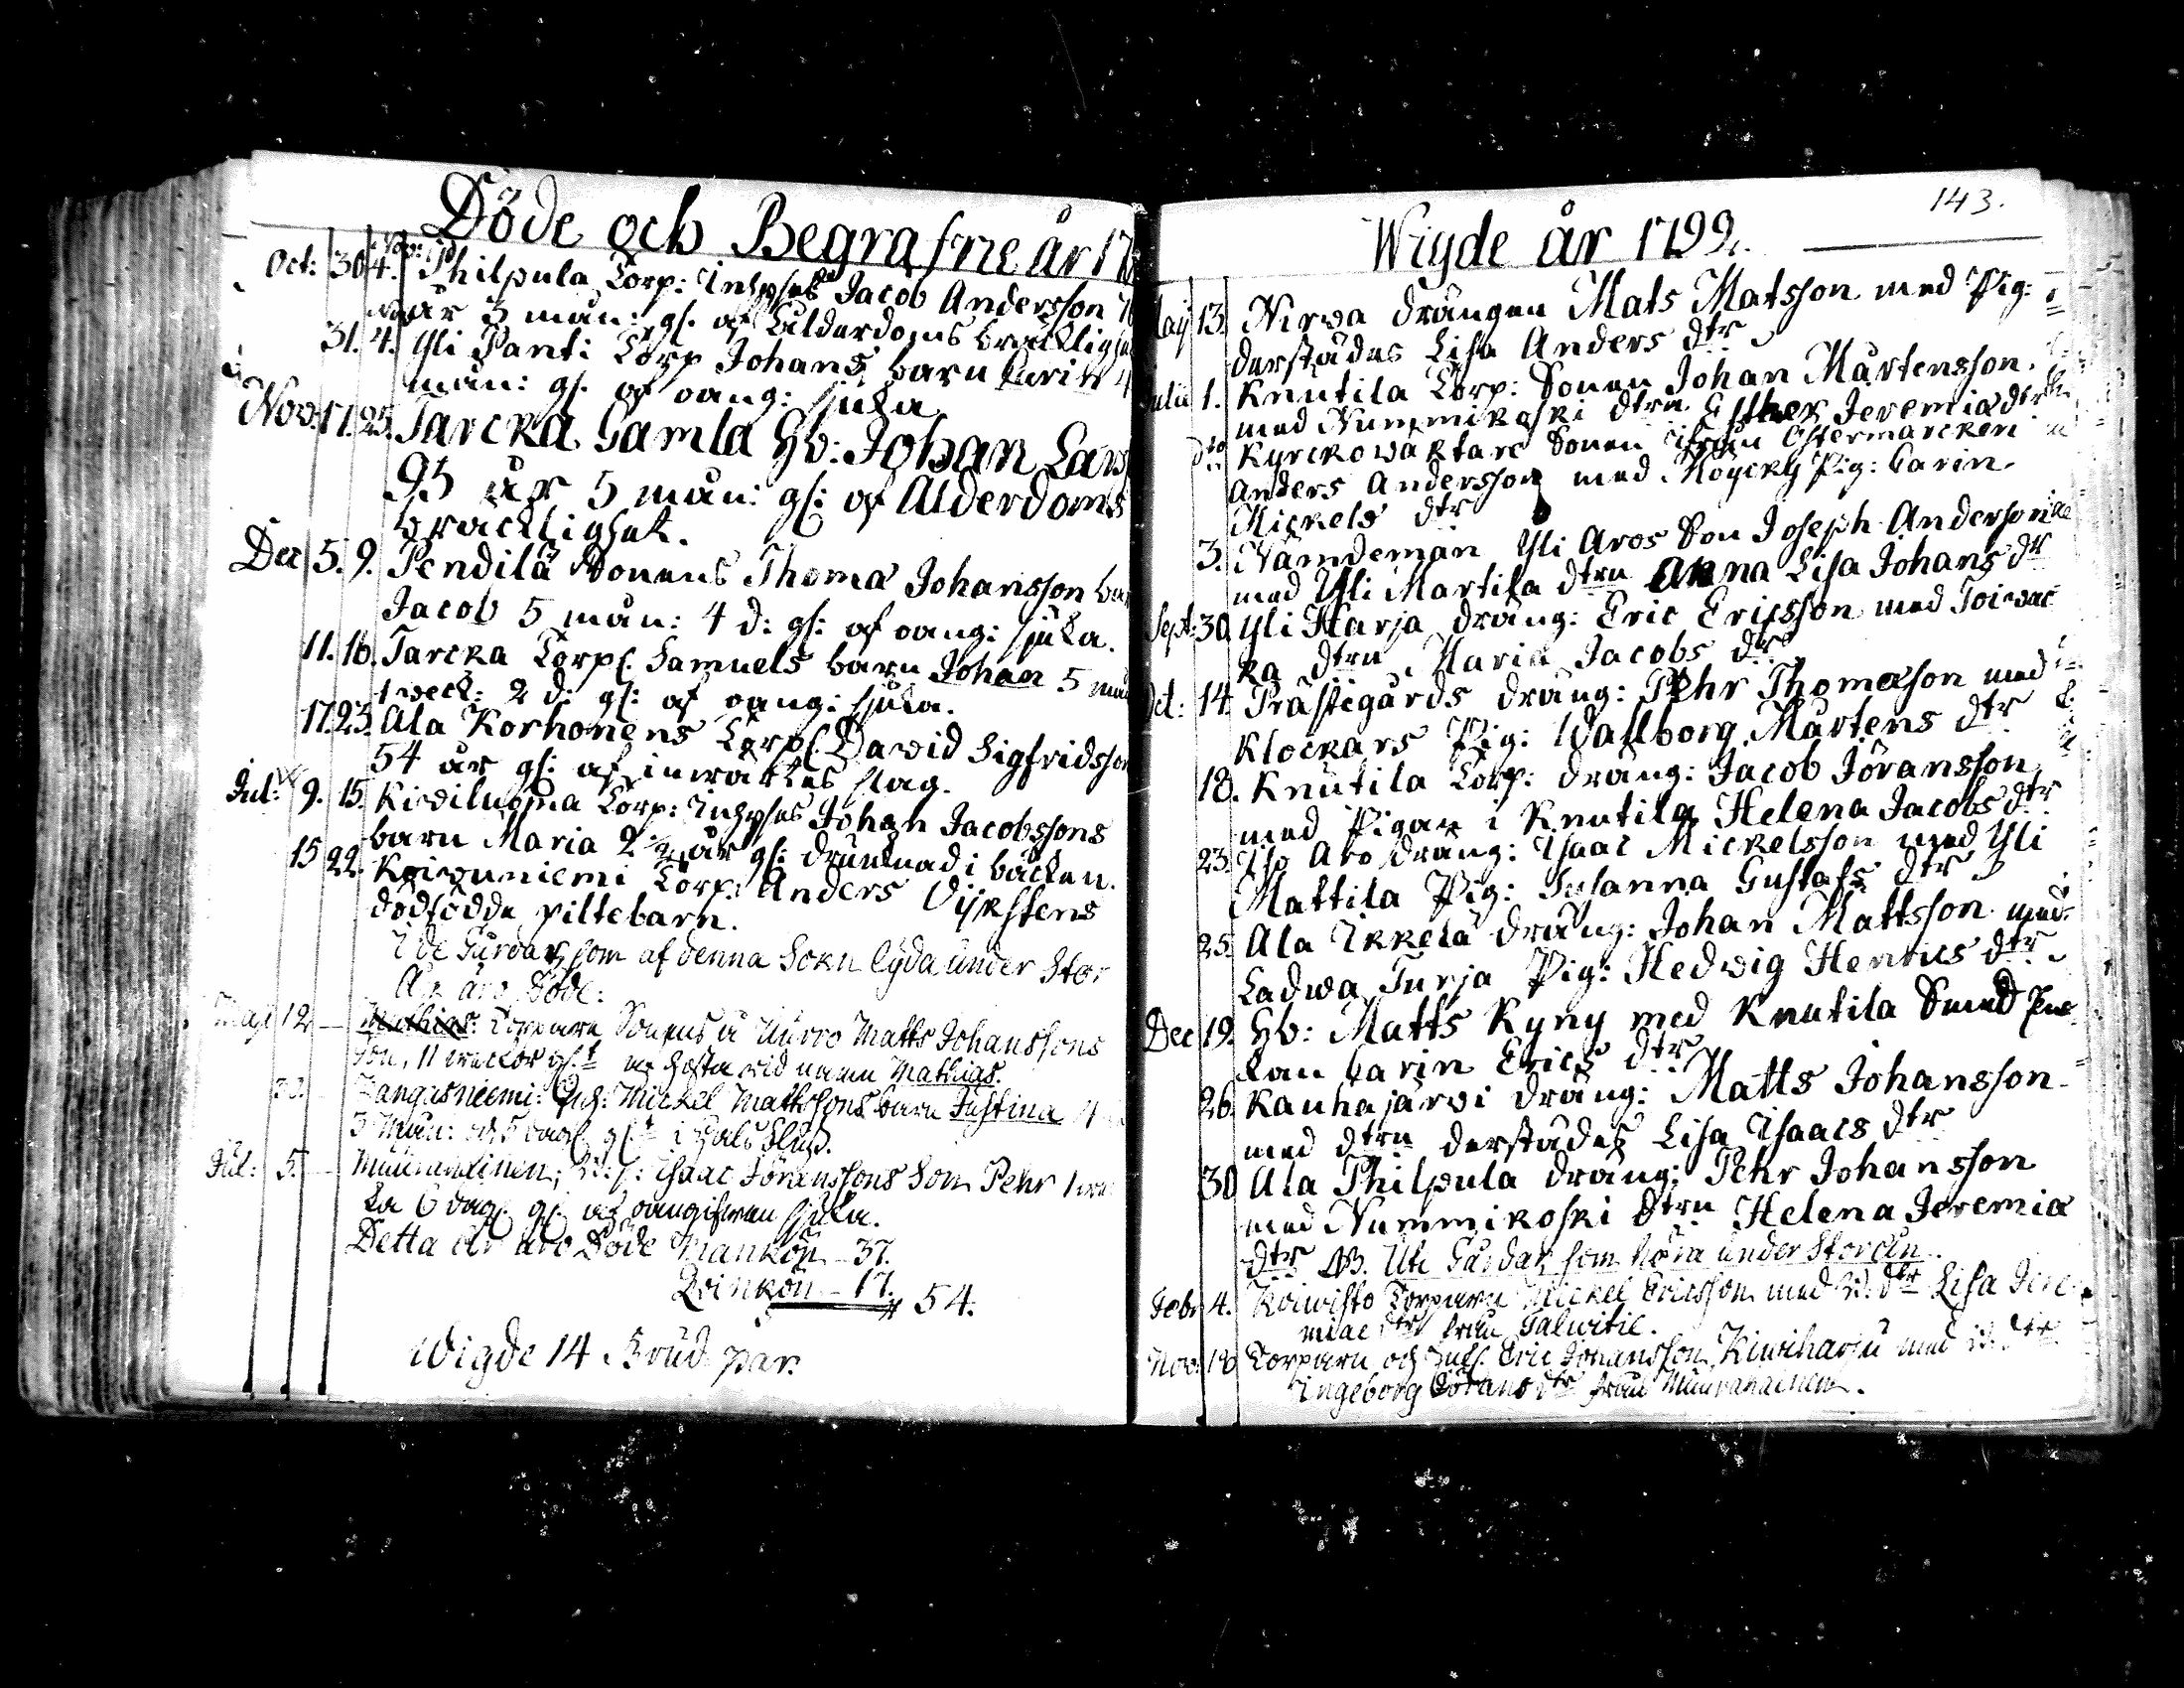 Döde och Begrafne år 17
Oct: 30 4. Philpula Torp: Inhyses Jacob Andersson
år 3 mån: gl. af ålderdoms bräcklighet
31. 4. Yli Panti Torp Johans barn Carin 4
mån: gl. af oang: sjuka
Nov: 17. 25. Tarcka Gamla Hb: Johan Lars
95 år 5 mån: gl: af Alderdoms
bräcklighet.
Dec 5. 9. Pendilä Sonens Thoma Johansson bar
Jacob 5 mån: 4 d: gl: af oang: sjuka.
11. 16. Tarcka Torp. Samuels barn Johan 5 mån
1 veck: 2 d: gl: af oang: sjuka.
17. 23. Ala Korhonens Torp. David Sigfridsson
54 år gl: af invärtes slag.
Jul: 9. 15. Kiviluoma Torp: Inhyses Johan Jacobssons
barn Maria 2 1/2 år gl: drunknad i bäcken.
15 22. Koivuniemi Torp. Anders Dijkstens
dödfödda piltebarn.
I de Gårdar som af denna Sokn lyda under Stor
äro Döde:
Maji 12 — Mathias. Torpare Sonens å Nurro Matts Johanssons
Son, 11 veckor gl. af hosta vid namn Mathias.
30. — Kangasniemi: Inh: Mickel Mattssons barn Justina
3 Mån: och 5 dag. gl. i Hals Fluss.
Jul: 5. — Isaac Göranssons Son Pehr 1 vec
ka 6 dag. gl. af oangifven sjuka.
Detta år äro Döde Mankön — 37.
Qvinkön — 17.
54.
Wigde 14 Brud par.
143.
Wigde år 1792.
Maj 13. Nirva drängen Mats Matsson med Pig:
derstädes Lisa Anders dtr
Julii 1. Knutila Torp: Sonen Johan Mårtensson.
med Nummikoski dtrn Esther Jeremiæ dtr
dto Kyrckowäktare Sonen ifrån Östermarcken
Anders Andersson med Röyckÿ Pig: Carin
Mickels dtr
3. Nämdeman Yli Aros Son Joseph Andersson
med Yli Martila dtrn Anna Lisa Johans dtr
Sept: 30. Yli Harja dräng: Eric Ericsson med Toivac
ka dtrn Maria Jacobs dtr
Oct: 14. Prästegårds dräng: Pehr Thomasson med
Klockars Pig: Wallborg Mårtens dtr
18. Knutila Torp: dräng: Jacob Jöransson
med Pigan i Knutila Helena Jacobs dtr
23. Iso Aro dräng: Isaac Mickelsson med Yli
Mattila Pig: Susanna Gustafs dtr
25. Ala Ikkelä dräng: Johan Mattsson med
Ladva Turja Pig: Hedvig Henrics dtr
Dec 19. Hb: Matts Kyny med Knutila Smed En
kan Carin Erics dtr
26. Kauhajärvi dräng: Matts Johansson
med dtrn derstädes Lisa Isaacs dtr
30 Ala Philpula dräng: Pehr Johansson
med Nummikoski dtrn Helena Jeremiæ
dtr NB. Uti Gårdar som höra under Storån.
Febr 4. Koivisto Torparen Mickel Ericsson med B. dtr Lisa Jere
miae dtr från Talvitie.
Nov: 18 Torparen och Inh. Eric Johansson Kiviharju med B. dtr
Ingeborg Görans dtr från Muurahainen.